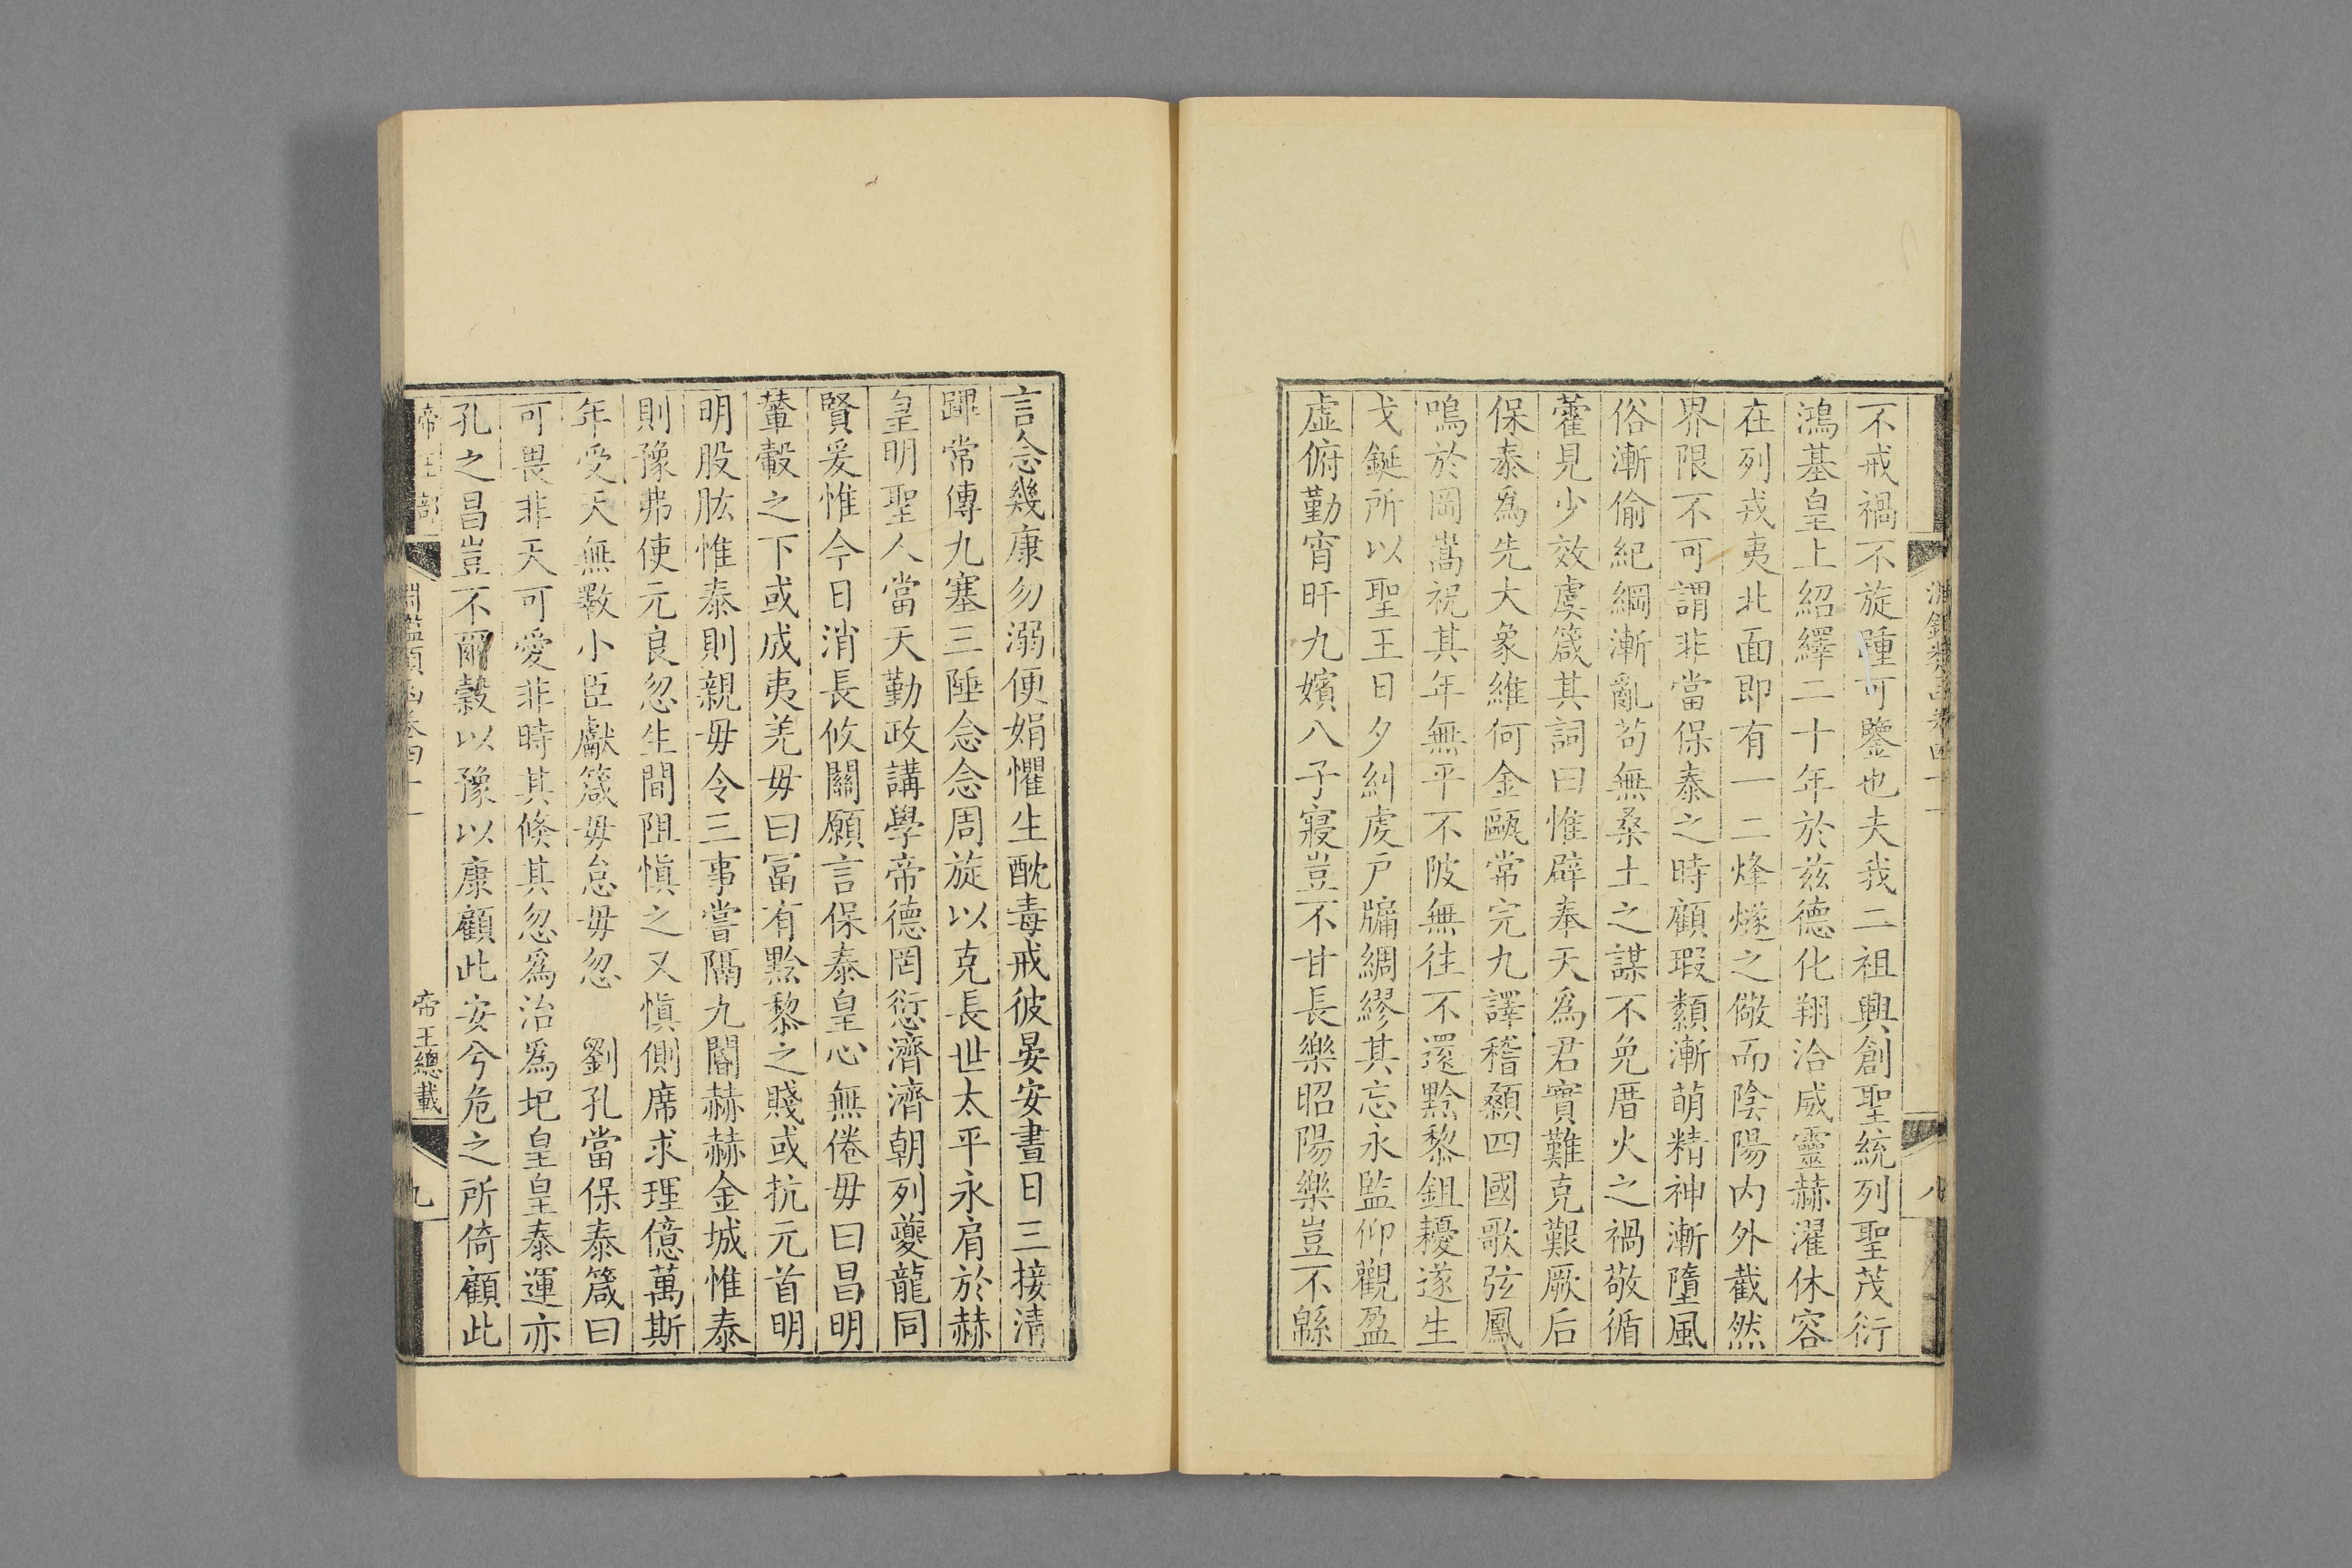 不戒禍不旋踵可鑒也夫我二祖興創聖統列聖茂衍
鴻基皇上紹繹二十年於茲德化翔洽威靈赫濯休容
在列戎夷北面即有一二烽燧之儆而陰陽内外截然
界限不可謂非當保泰之時顧瑕纇漸萌精神漸隳風
俗漸偷紀綱漸亂苟無桑土之謀不免厝火之禍敬循
藿見少效虞箴其詞曰惟辟奉天為君實難克艱厥后
保泰為先大象維何金甌常完九譯稽顙四國歌弦鳳
鳴於岡嵩祝其年無平不陂無往不還黔黎鉏耰遂生
戈鋋所以聖王日夕糾虔戸牖綢繆其忘永監仰觀盈
虛俯勤宵旰九嬪八子寢豈不甘長樂昭陽樂豈不緜
言念幾康勿溺便娟懼生酖毒戒彼晏安晝日三接清
蹕常傳九塞三陲念念周旋以克長世太平永肩於赫
皇明聖人當天勤政講學帝德罔愆濟濟朝列夔龍同
賢爰惟今日消長攸關願言保泰皇心無倦毋曰昌明
輦轂之下或成夷羌毋曰冨有黔黎之賤或抗元首明
明股肱惟泰則親毋令三事嘗隔九閽赫赫金城惟泰
則豫弗使元良忽生間阻愼之又愼側席求理億萬斯
年受天無斁小臣獻箴毋怠毋忽 劉孔當保泰箴曰
可畏非天可愛非時其倏其忽為治為圯皇皇泰運亦
孔之昌豈不爾穀以豫以康顧此安兮危之所倚顧此
帝王總載
九